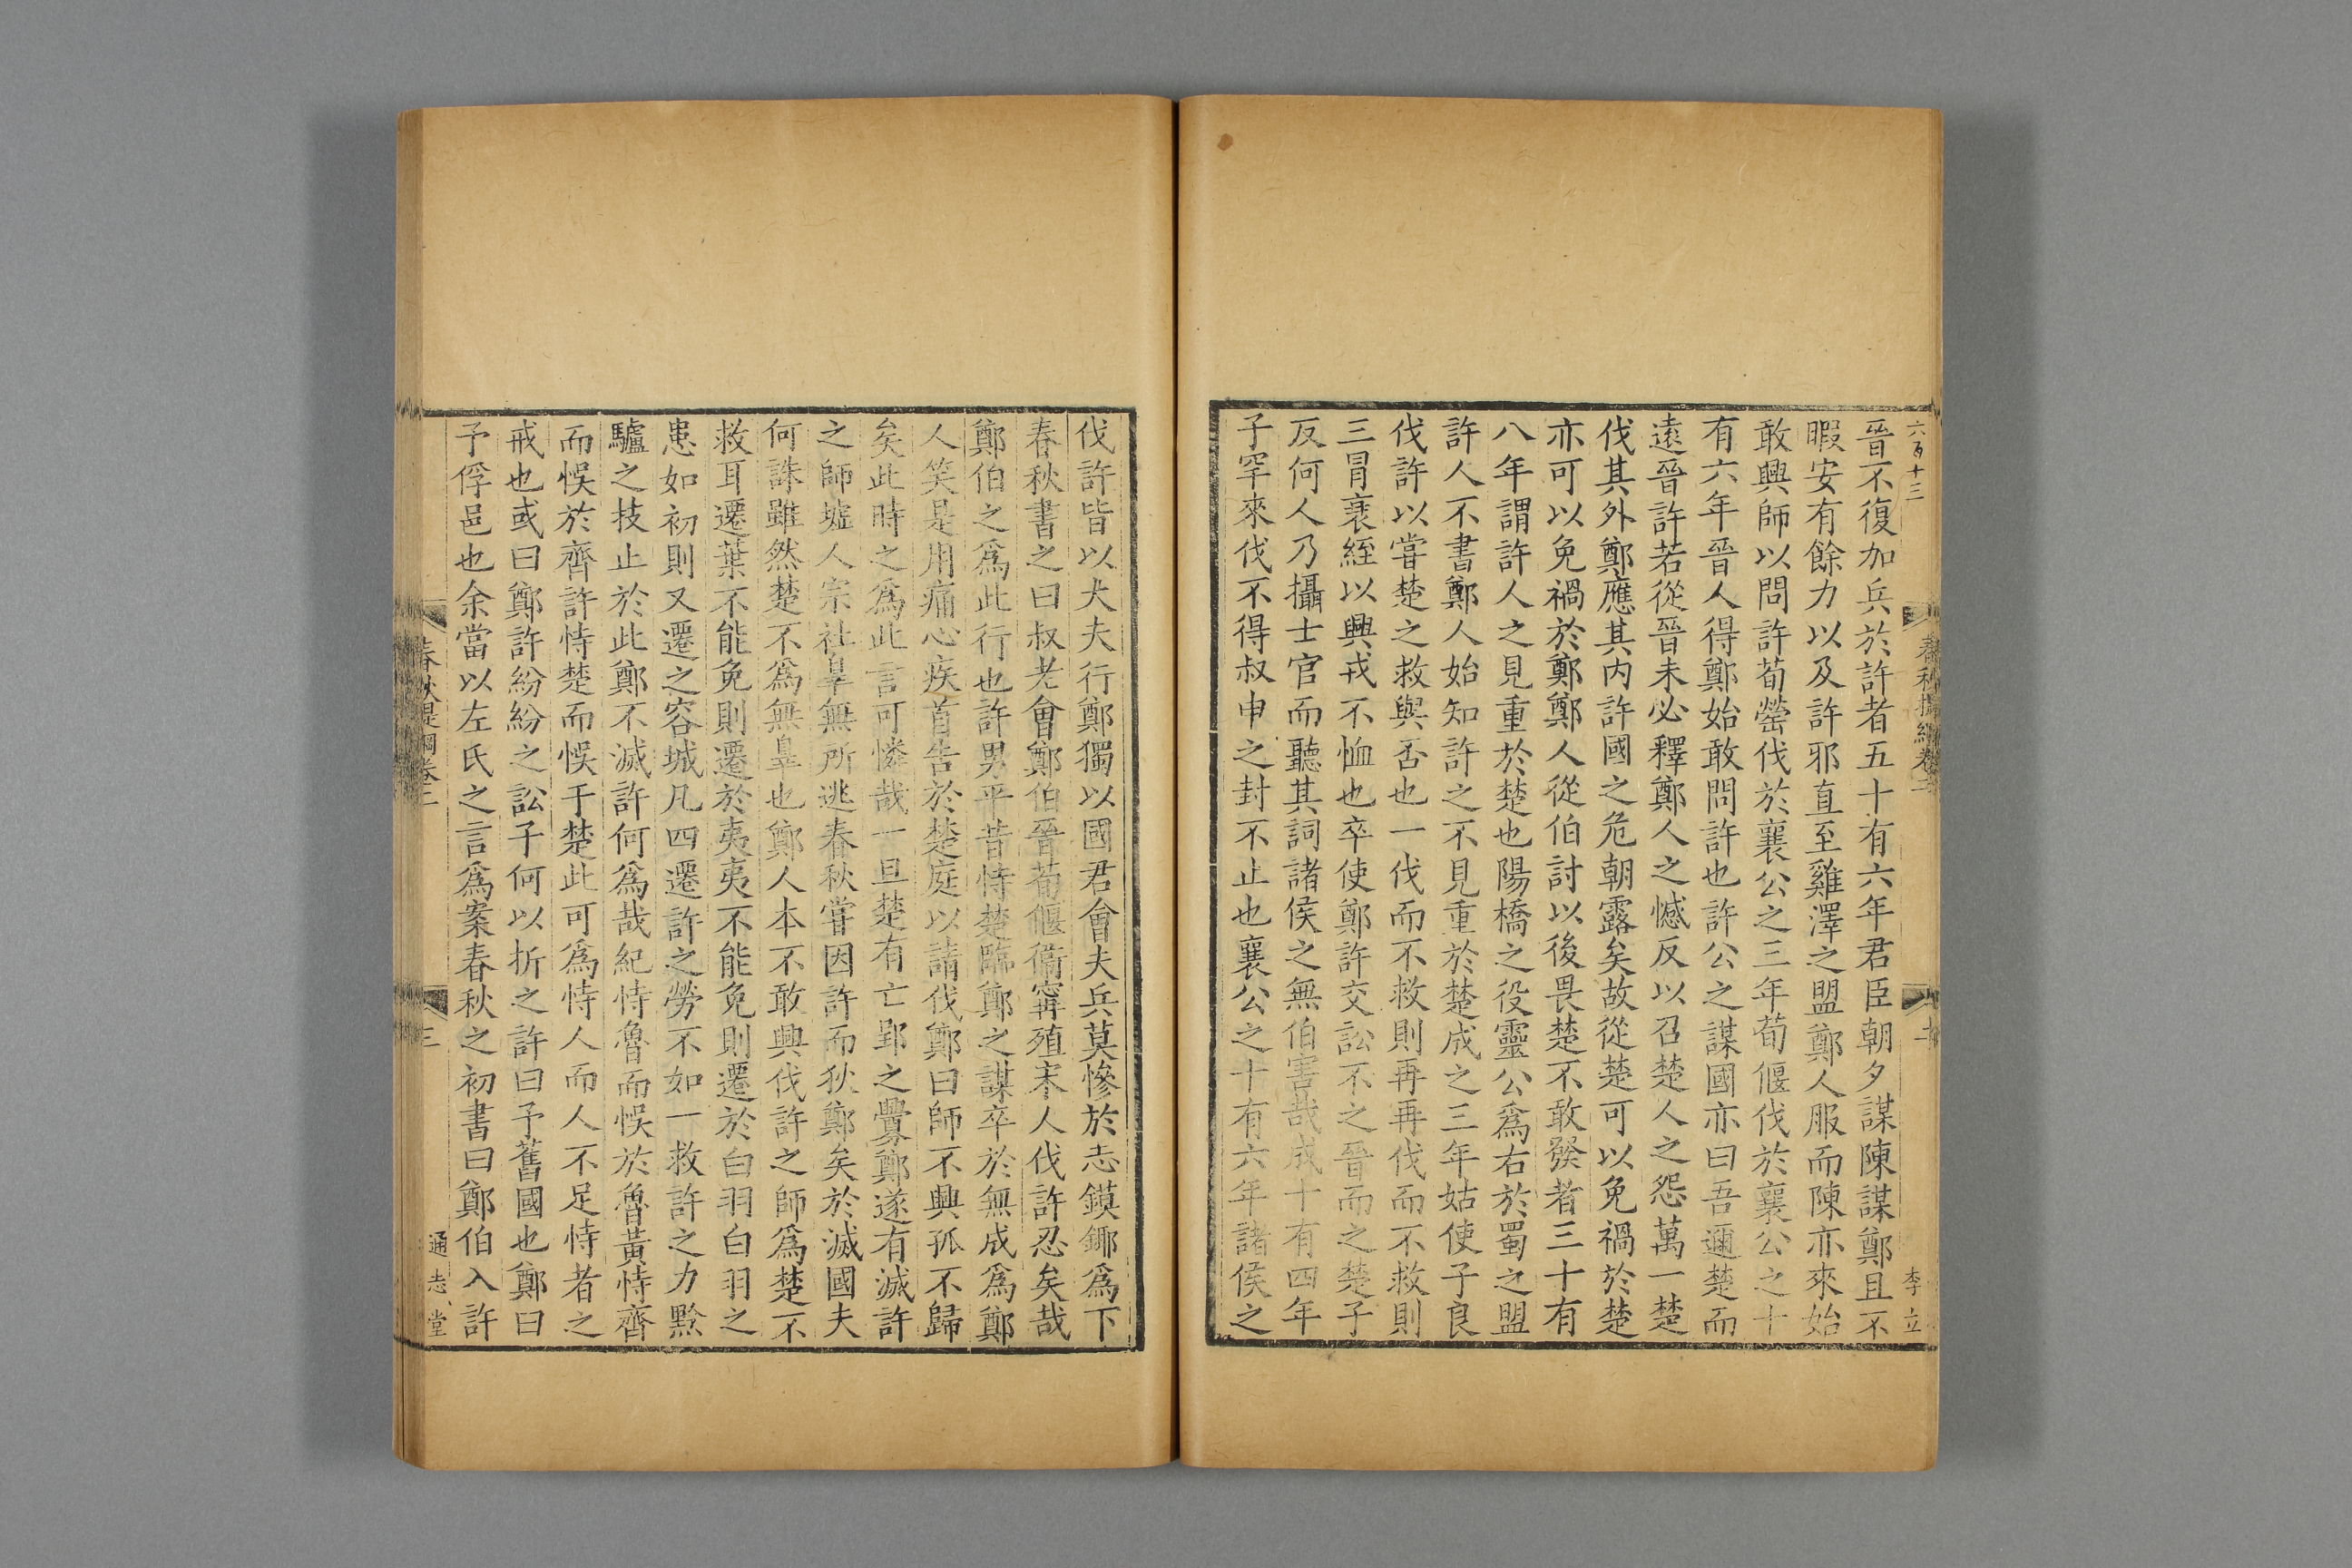 六百十三
春秋提綱卷三
李立
晉不復加兵於許者五十有六年君臣朝夕謀陳謀鄭且不
暇安有餘力以及許邪直至雞澤之盟鄭人服而陳亦來始
敢興師以問許荀罃伐於襄公之三年荀偃伐於襄公之十
有六年晉人得鄭始敢問許也許公之謀國亦曰吾邇楚而
遠晉許若從晉未必釋鄭人之憾反以召楚人之怨萬一楚
伐其外鄭應其內許國之危朝露矣故從楚可以免禍於楚
亦可以免禍於鄭鄭人從伯討以後畏楚不敢發者三十有
八年謂許人之見重於楚也陽橋之役靈公爲右於蜀之盟
許人不書鄭人始知許之不見重於楚成之三年姑使子良
伐許以嘗楚之救與否也一伐而不救則再再伐而不救則
三冒衰絰以興戎不恤也卒使鄭許交訟不之晉而之楚子
反何人乃攝士官而聽其詞諸侯之無伯害哉成十有四年
子罕來伐不得叔申之封不止也襄公之十有六年諸侯之
伐許皆以大夫行鄭獨以國君會夫兵莫慘於志鏌鎁爲下
春秋書之曰叔老會鄭伯晉荀偃衞甯殖宋人伐許忍矣哉
鄭伯之爲此行也許男平昔恃楚臨鄭之謀卒於無成爲鄭
人笑是用痛心疾首告於楚庭以請伐鄭曰師不興孤不歸
矣此時之爲此言可憐哉一旦楚有亡郢之釁鄭遂有滅許
之師墟人宗社辠無所逃春秋嘗因許而狄鄭矣於滅國夫
何誅雖然楚不爲無辠也鄭人本不敢興伐許之師爲楚不
救耳遷葉不能免則遷於夷夷不能免則遷於白羽白羽之
患如初則又遷之容城凡四遷許之勞不如一救許之力黔
驢之技止於此鄭不滅許何爲哉紀恃魯而悞於魯黃恃齊
而悞於齊許恃楚而悞于楚此可爲恃人而人不足恃者之
戒也或曰鄭許紛紛之訟子何以折之許曰予舊國也鄭曰
予俘邑也余當以左氏之言爲案春秋之初書曰鄭伯入許
春秋提綱卷三
三
通志堂